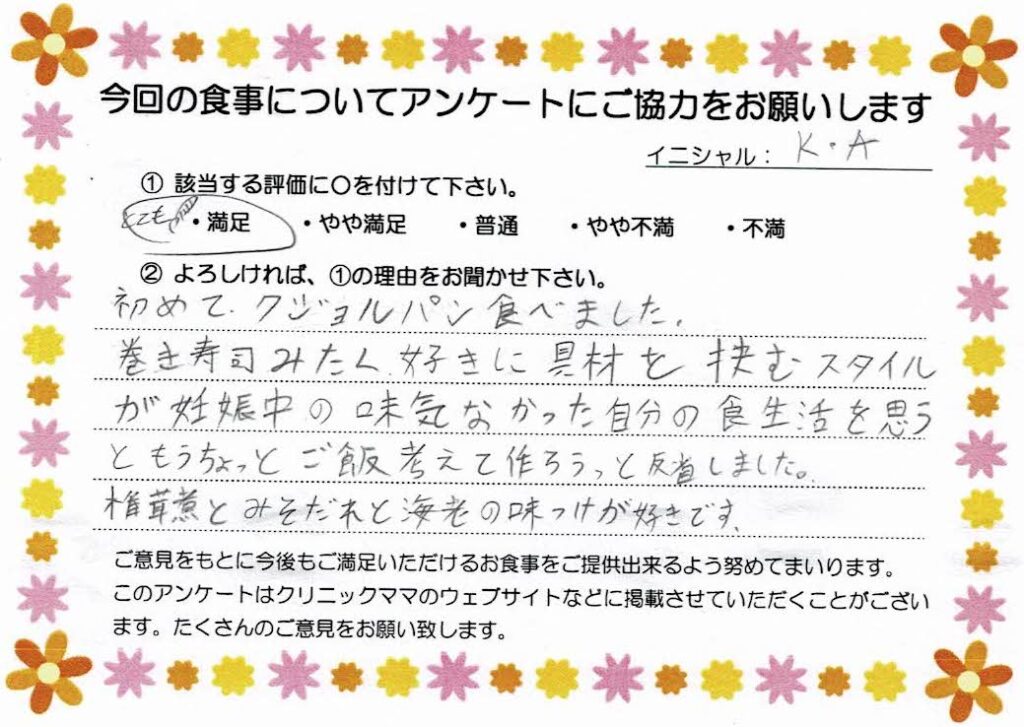 今回の食事についてアンケートにご協力をお願いします
イニシャル： K・A
① 該当する評価に〇を付けて下さい。
とても ・満足 ・やや満足 ・普通 ・やや不満 ・不満
② よろしければ、①の理由をお聞かせ下さい。
初めて、クジョルパン食べました。
巻き寿司みたく、好きに具材を挟むスタイル
が妊娠中の味気なかった自分の食生活を思う
ともうちょっとご飯考えて作ろうっと反省しました。
椎茸煮とみそだれと海老の味つけが好きです。
ご意見をもとに今後もご満足いただけるお食事をご提供出来るよう努めてまいります。
このアンケートはクリニックママのウェブサイトなどに掲載させていただくことがござい
ます。たくさんのご意見をお願い致します。